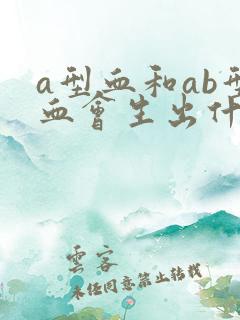 a型血和ab型
血會生出什
雲客
未经同意禁止转载